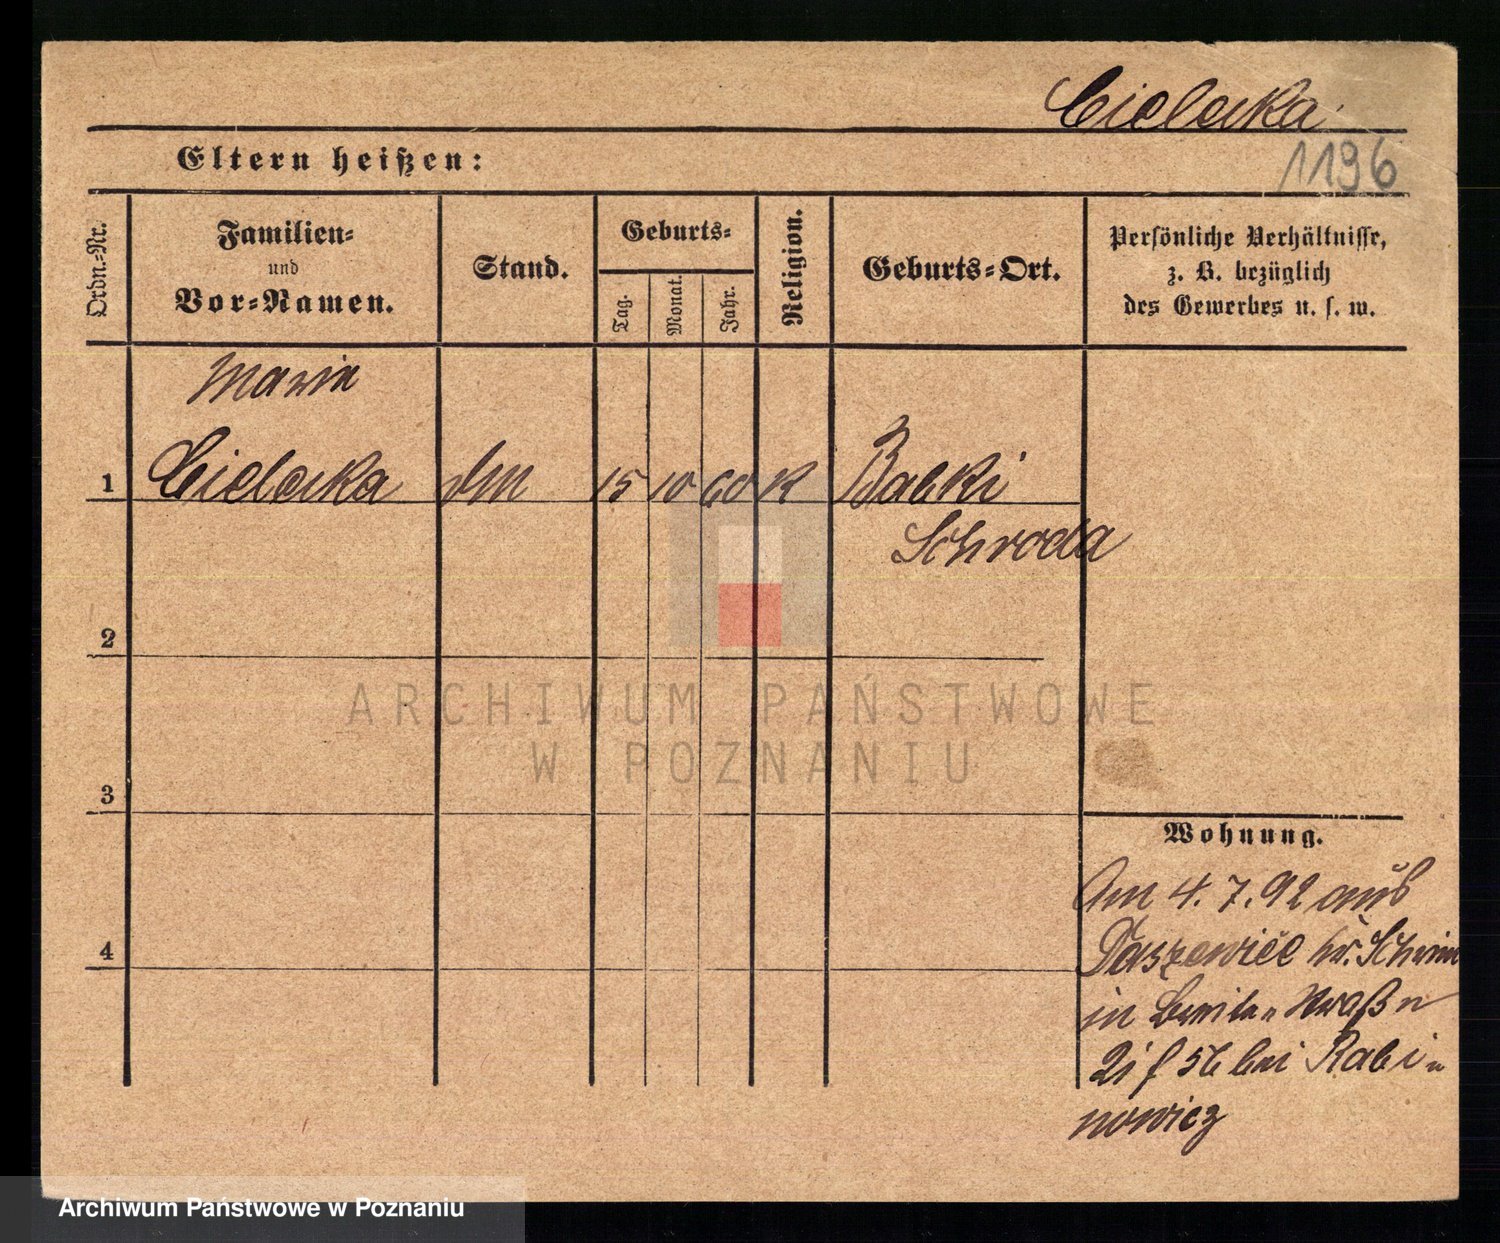 Cielecka
Eltern heißen:
1196
Ordn.-Nr.
Familien-
und
Vor-Namen.
Stand.
Geburts-
Tag.
Monat.
Jahr.
Religion.
Geburts-Ort.
Persönliche Verhältnisse,
z. B. bezüglich
des Gewerbes u. s. w.
Marie
1 Cielecka 15 10 60 K Babki
Schroda
2
3
4
Wohnung.
Am 4. 7. 92 aus
Daszewice kr. Schrim
in Breite Straße
56 bei Rabi-
nowicz
ARCHIWUM PAŃSTWOWE
W POZNANIU
Archiwum Państwowe w Poznaniu